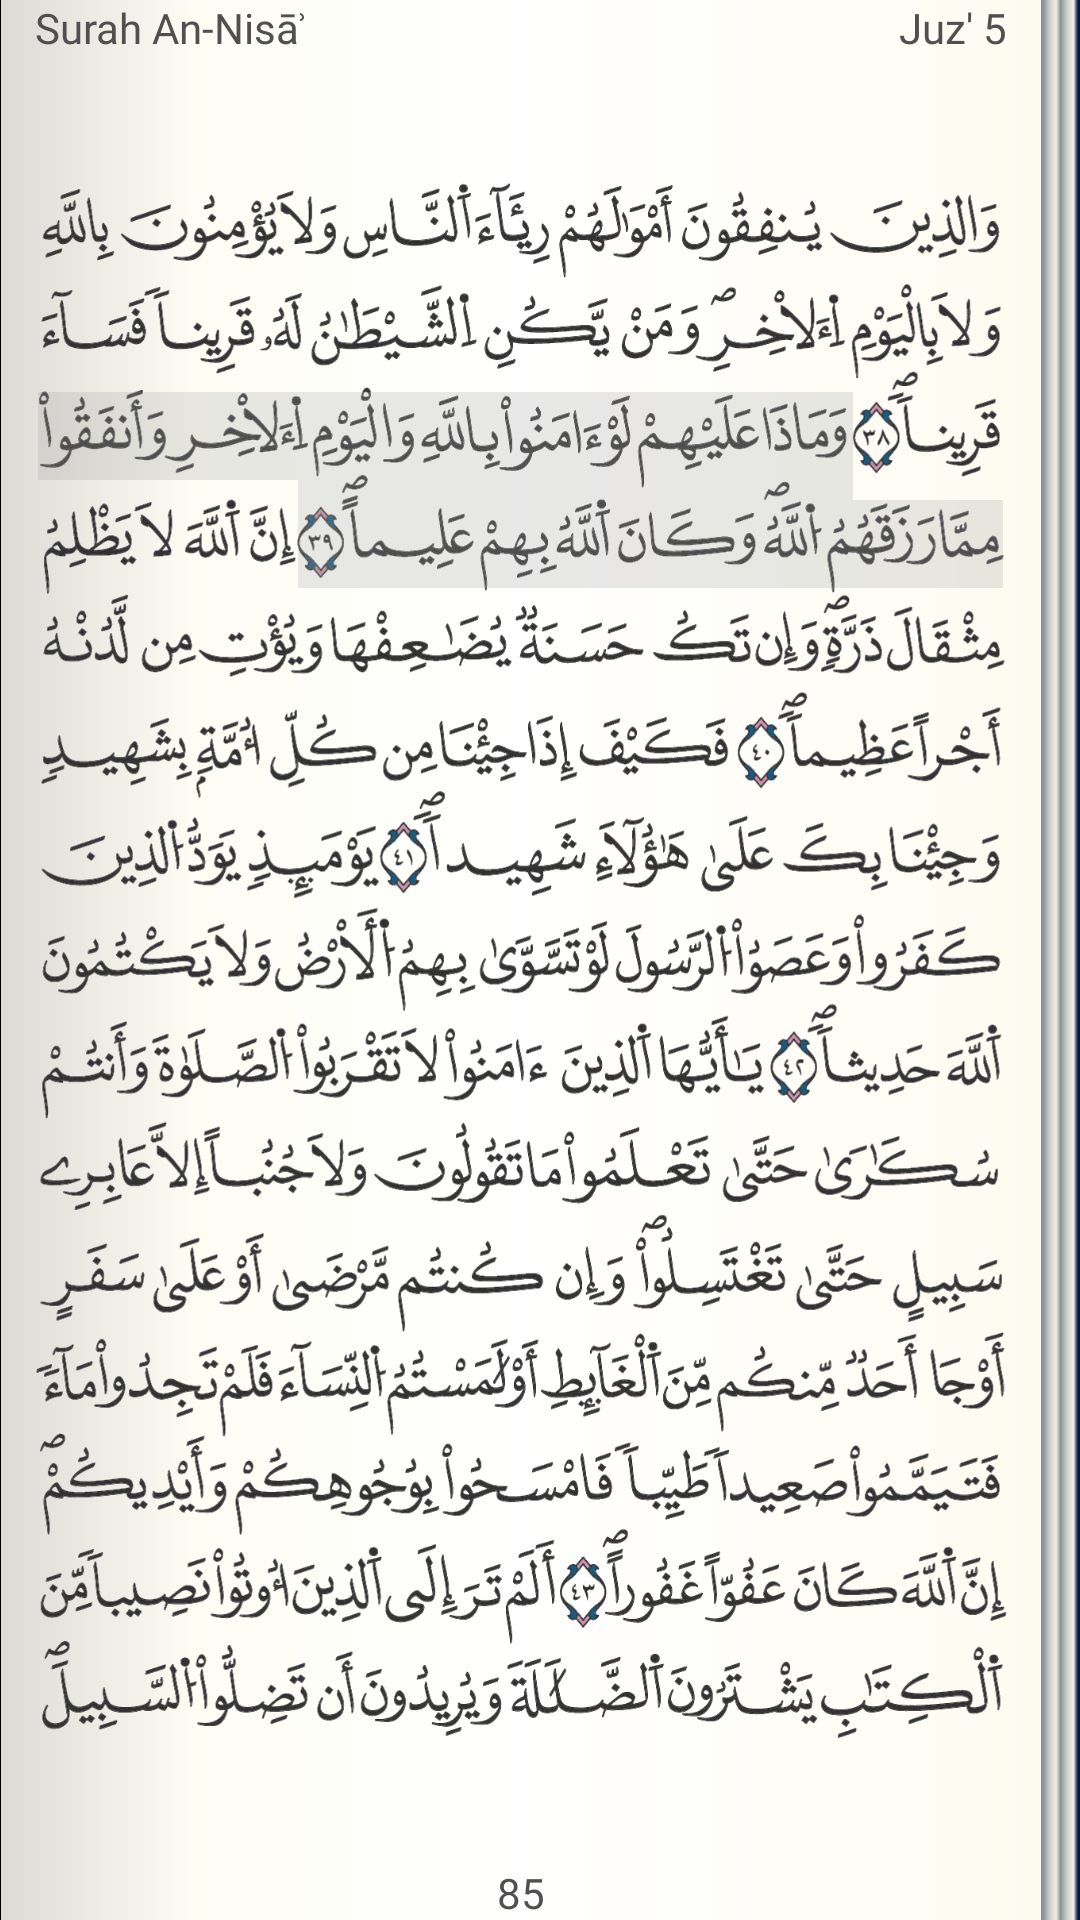 Surah An-Nisāʾ
Juz' 5
وَالذِينَ يُنفِقُونَ أَمْوَٰلَهُمْ رِئَآءَ اَ۬لنَّاسِ وَلَا يُؤْمِنُونَ بِاللَّهِ
وَلَا بِالْيَوْمِ اِ۬ءَلَاخِرِۖ وَمَنْ يَّكُنِ اِ۬لشَّيْطَٰنُ لَهُۥ قَرِيناٗ فَسَآءَ
قَرِيناٗۖ ٣٨ وَمَاذَا عَلَيْهِمْ لَوْ ءَامَنُواْ بِاللَّهِ وَالْيَوْمِ اِ۬ءَلَاخِرِ وَأَنفَقُواْ
مِمَّا رَزَقَهُمُ اُ۬للَّهُۖ وَكَانَ اَ۬للَّهُ بِهِمْ عَلِيماًۖ ٣٩ إِنَّ اَ۬للَّهَ لَا يَظْلِمُ
مِثْقَالَ ذَرَّةٖۖ وَإِن تَكُ حَسَنَةٞ يُضَٰعِفْهَا وَيُؤْتِ مِن لَّدُنْهُ
أَجْراً عَظِيماٗۖ ٤٠ فَكَيْفَ إِذَا جِئْنَا مِن كُلِّ أُمَّةِۢ بِشَهِيدٖ
وَجِئْنَا بِكَ عَلَىٰ هَٰؤُلَآءِ شَهِيداٗۖ ٤١ يَوْمَئِذٖ يَوَدُّ اُ۬لذِينَ
كَفَرُواْ وَعَصَوُاْ اُ۬لرَّسُولَ لَوْ تَسَّوَّىٰ بِهِمُ اُ۬لَارْضُ وَلَا يَكْتُمُونَ
اَ۬للَّهَ حَدِيثاٗۖ ٤٢ يَٰأَيُّهَا اَ۬لذِينَ ءَامَنُواْ لَا تَقْرَبُواْ اُ۬لصَّلَوٰةَ وَأَنتُمْ
سُكَٰرَىٰ حَتَّىٰ تَعْلَمُواْ مَا تَقُولُونَ وَلَا جُنُباً إِلَّا عَابِرِے
سَبِيلٍ حَتَّىٰ تَغْتَسِلُواْۖ وَإِن كُنتُم مَّرْضَىٰ أَوْ عَلَىٰ سَفَرٍ
أَوْ جَا أَحَدٞ مِّنكُم مِّنَ اَ۬لْغَآئِطِ أَوْ لَٰمَسْتُمُ اُ۬لنِّسَآءَ فَلَمْ تَجِدُواْ مَآءٗ
فَتَيَمَّمُواْ صَعِيداٗ طَيِّباٗ فَامْسَحُواْ بِوُجُوهِكُمْ وَأَيْدِيكُمْۖ
إِنَّ اَ۬للَّهَ كَانَ عَفُوّاً غَفُوراًۖ ٤٣ أَلَمْ تَرَ إِلَى اَ۬لذِينَ أُوتُواْ نَصِيباٗ مِّنَ
اَ۬لْكِتَٰبِ يَشْتَرُونَ اَ۬لضَّلَٰلَةَ وَيُرِيدُونَ أَن تَضِلُّواْ اُ۬لسَّبِيلَۖ
85